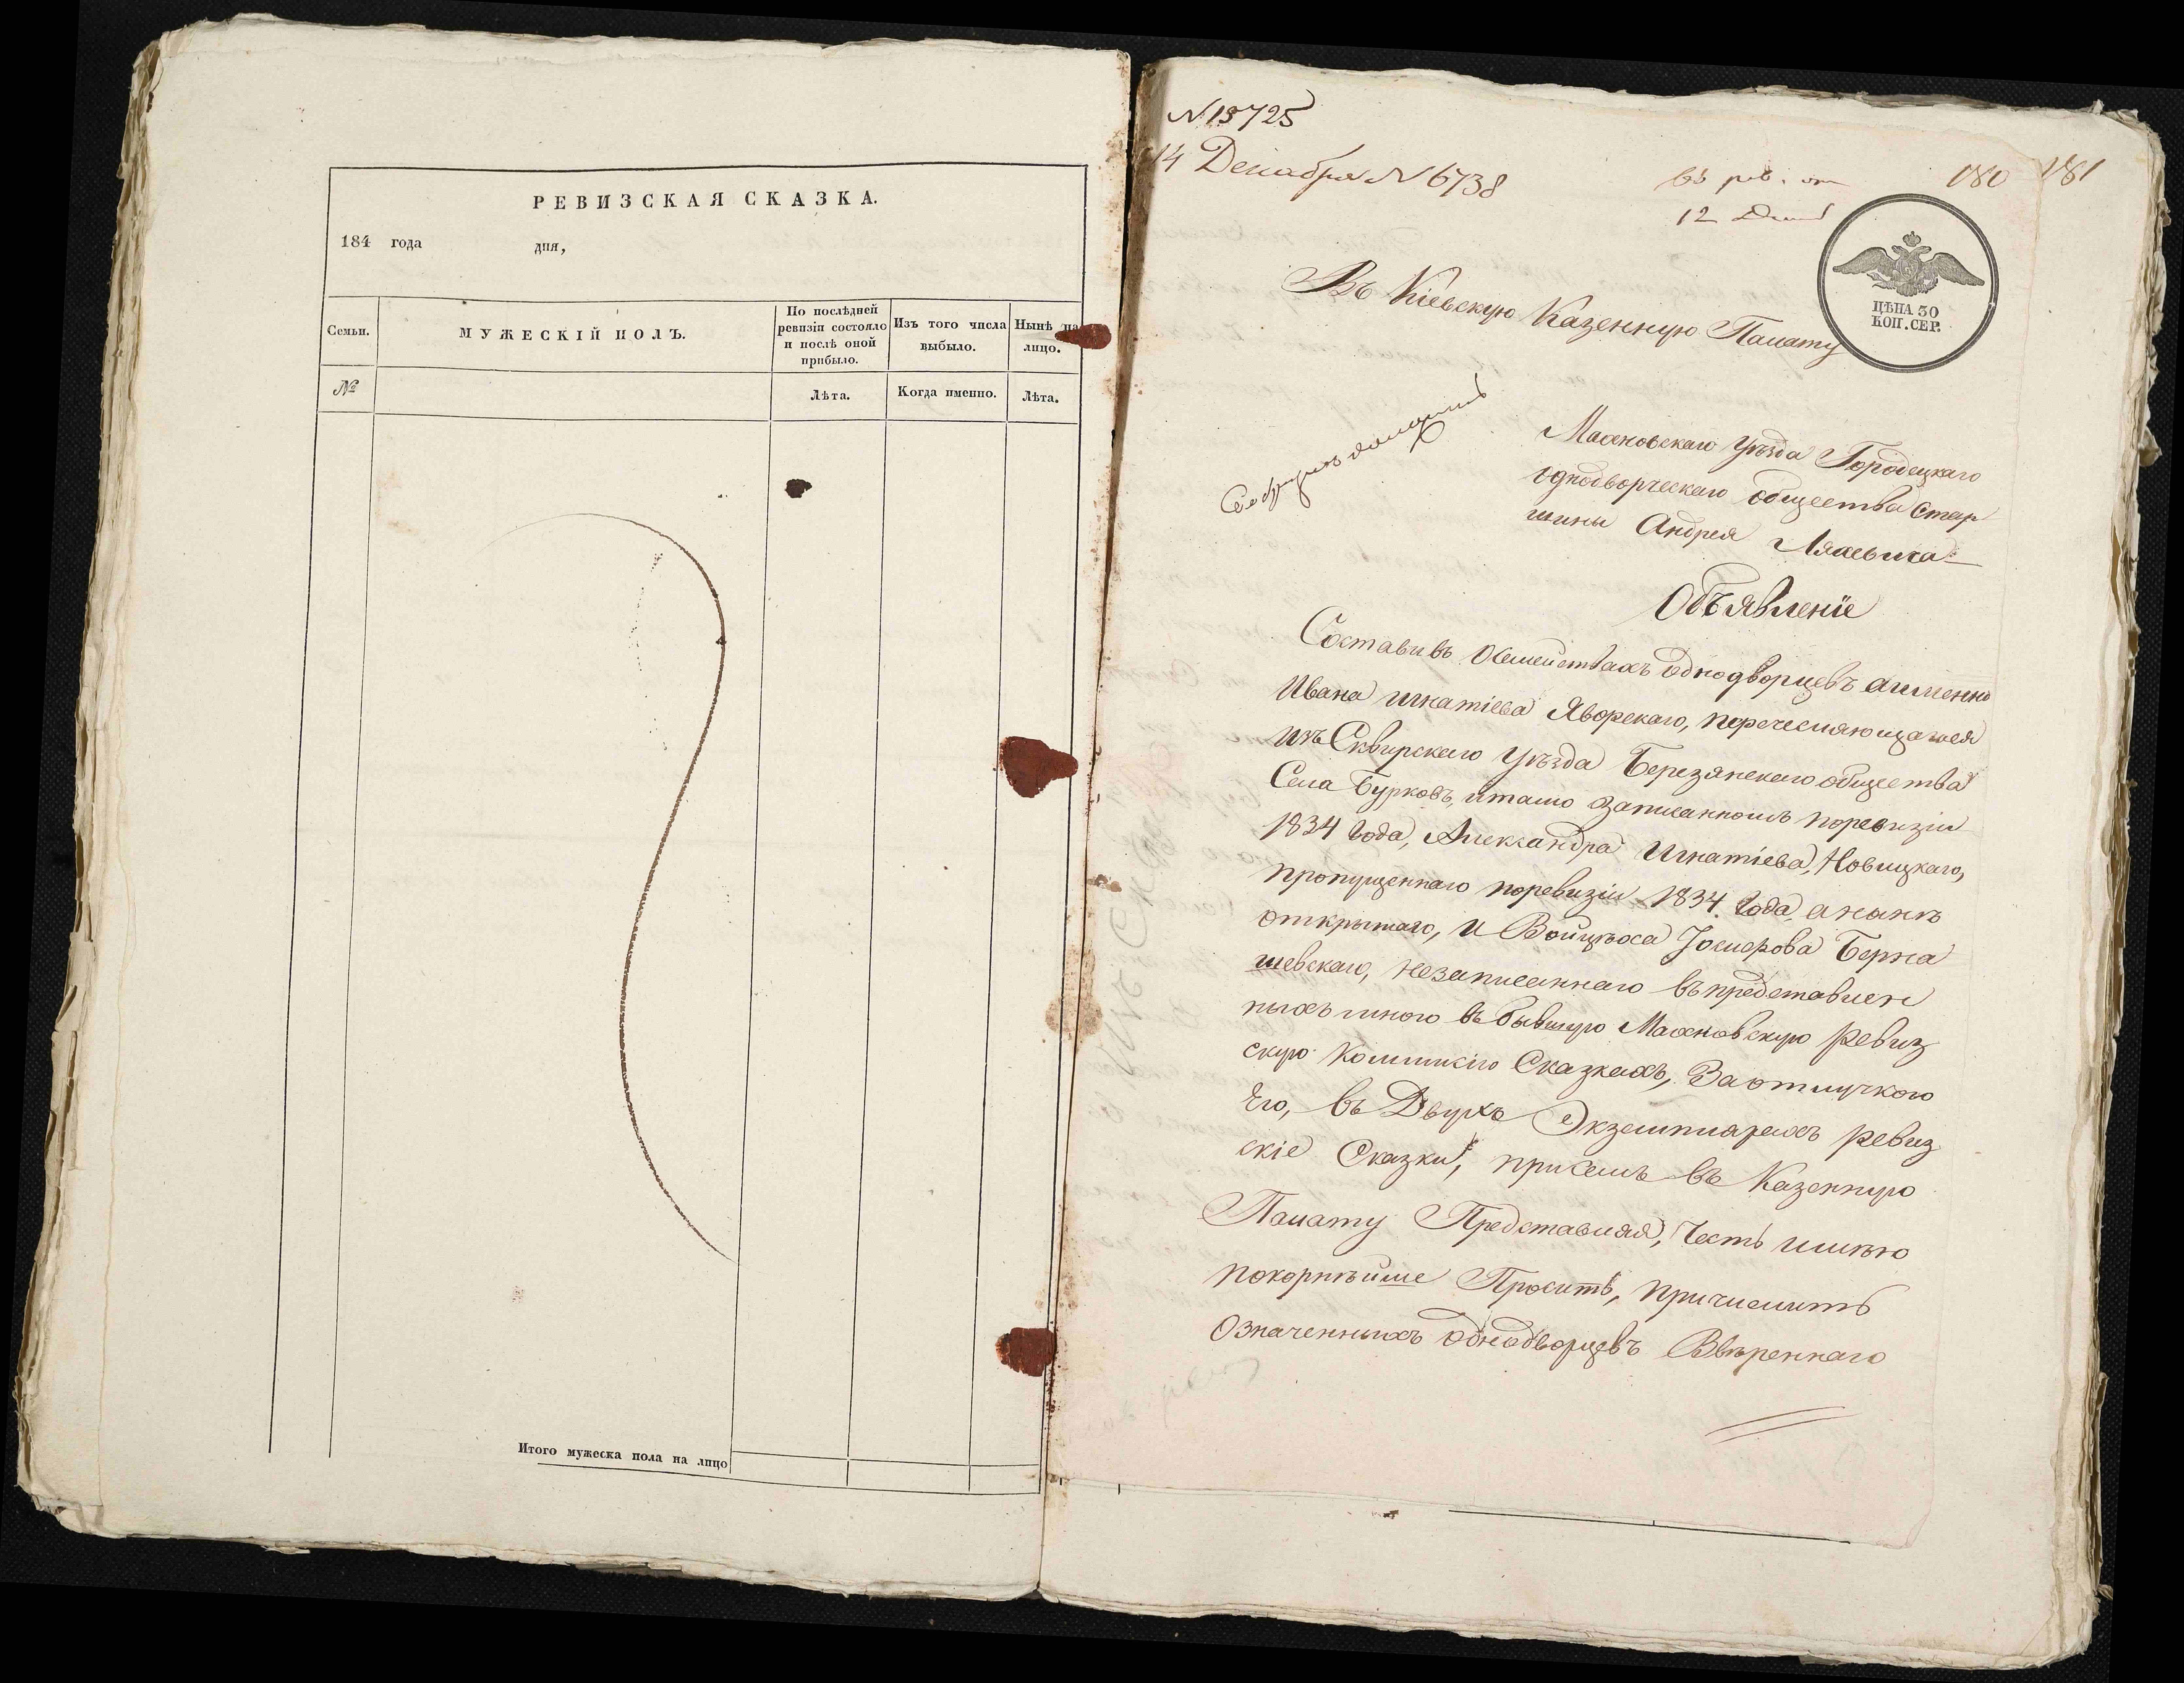 РЕВИЗСКАЯ СКАЗКА.
184 года дня,
Семьи.
МУЖЕСКІЙ ПОЛЪ.
По послѣдней
ревизіи состояло
и послѣ оной
прибыло.
Изъ того числа
выбыло.
Нынѣ на
лицо.
№
Лѣта.
Когда именно.
Лѣта.
Итого мужеска пола на лицо
N 13725
14 Декабря N 6738
въ рев. от
12
180 181
ЦѢНА 30
КОП. СЕР.
Въ Кіевскую Казенную Палату
Махновскаго Уѣзда Городецкаго
однодворческаго общества Стар
шины Андрея
Объявленіе
Составивъ осемействахъ однодворцевъ аименно
Ивана игнатіева Яворскаго, перечисляющагося
изъ Сквирскаго Уѣзда Березянскаго общества
Села Бурковъ, итамо записанномъ поревизіи
1834 Года, Александра Игнатіева, Новицкаго,
пропущеннаго поревизіи 1834. Года, анынѣ
открытаго, и Войцѣха Іосифова Берна
шевскаго, незаписаннаго въпредставлен
ныхъ мною въ бывшую Махновскую Ревиз
скую Коммисію Сказкахъ, Заотлучкою
Его, въ Двухъ Экземплярахъ Ревиз
скіе Сказки, присемъ въ Казенную
Палату Представляя, Честь имѣю
покорнѣйше Просить, причислить
Означенныхъ однодворцевъ Ввѣреннаго